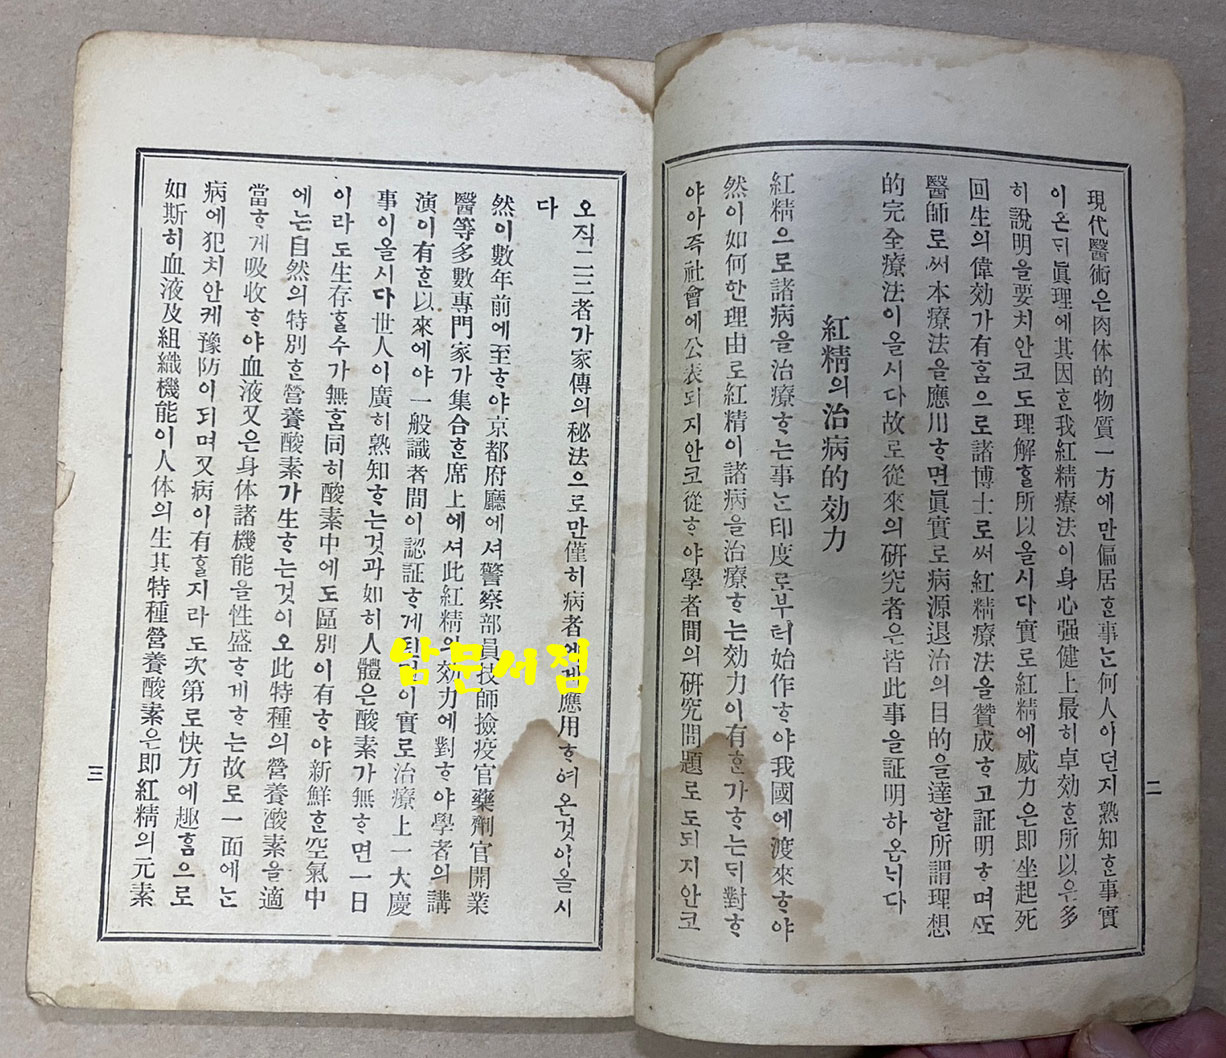 現代醫術은肉体的物質一方에만偏居ᄒᆞᆫ事ᄂᆞᆫ何人아던지熟知ᄒᆞᆫ事實
이온ᄃᆡ眞理에其因ᄒᆞᆫ我紅精療法이身心强健上最히卓効ᄒᆞᆫ所以은多
히說明을要치안코도理解ᄒᆞᆯ所以올시다實로紅精에威力은即坐起死
回生의偉効가有ᄒᆞᆷ으로諸博士로써紅精療法을贊成ᄒᆞ고証明ᄒᆞ며ᄯᅩ
醫師로써本療法을應用ᄒᆞ면眞實로病源退治의目的을達할所謂理想
的完全療法이올시다故로從來의硏究者은皆此事을証明하온니다
紅精의治病的効力
紅精으로諸病을治療ᄒᆞᄂᆞᆫ事ᄂᆞᆫ印度로부터始作ᄒᆞ야我國에渡來ᄒᆞ야
然이如何한理由로紅精이諸病을治療ᄒᆞᄂᆞᆫ効力이有ᄒᆞᆫ가ᄒᆞᄂᆞᆫᄃᆡ對ᄒᆞ
야아즉社會에公表되지안코從ᄒᆞ야學者間의硏究問題로도되지안코
二
오직二三者가家傳의秘法으로만僅히病者에게應用ᄒᆞ여온것이올시
다
然이數年前에至ᄒᆞ야京都府廳에셔警察部員技師撿疫官藥劑官開業
醫等多數專門家가集合ᄒᆞᆫ席上에셔此紅精의効力에對ᄒᆞ야學者의講
演이有ᄒᆞᆫ以來에야一般識者間이認証ᄒᆞ게되며이實로治療上一大慶
事이올시다世人이廣히熟知ᄒᆞᄂᆞᆫ것과如히人體은酸素가無ᄒᆞ면一日
이라도生存ᄒᆞᆯ수가無ᄒᆞᆷ同히酸素中에도區別이有ᄒᆞ야新鮮ᄒᆞᆫ空氣中
에ᄂᆞᆫ自然의特別ᄒᆞᆫ營養酸素가生ᄒᆞᄂᆞᆫ것이오此特種의營養酸素을適
當ᄒᆞ게吸收ᄒᆞ야血液又은身体諸機能을性盛ᄒᆞ게ᄒᆞᄂᆞᆫ故로一面에ᄂᆞᆫ
病에犯치안케豫防이되며又病이有ᄒᆞᆯ지라도次第로快方에趣ᄒᆞᆷ으로
如斯히血液及組織機能이人体의生其特種營養酸素은即紅精의元素
三
남문서점